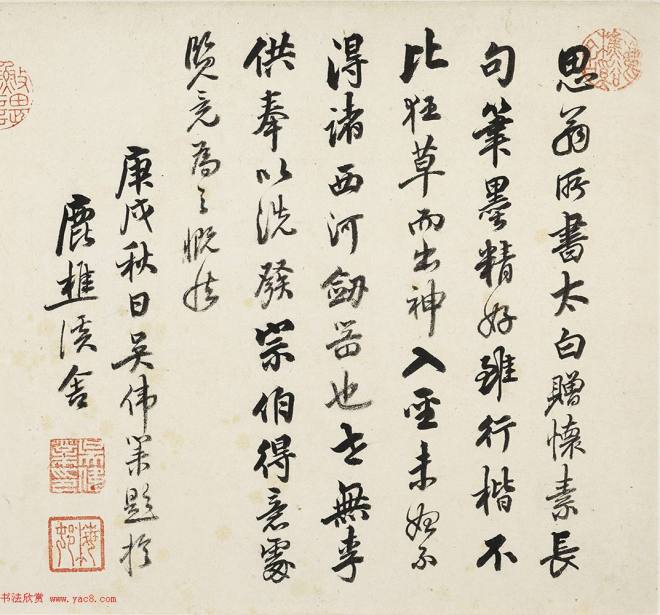 思翁所書太白贈懷素長
句筆墨精好雖行楷不
比狂草而出神入聖未始不
得諸西河劒器也世無李
供奉以洗發宗伯得意處
覽竟為之慨然
庚戌秋日吳伟業題於
鹿樵溪舍
吳偉業印
梅村
书法欣赏 www.yac8.com